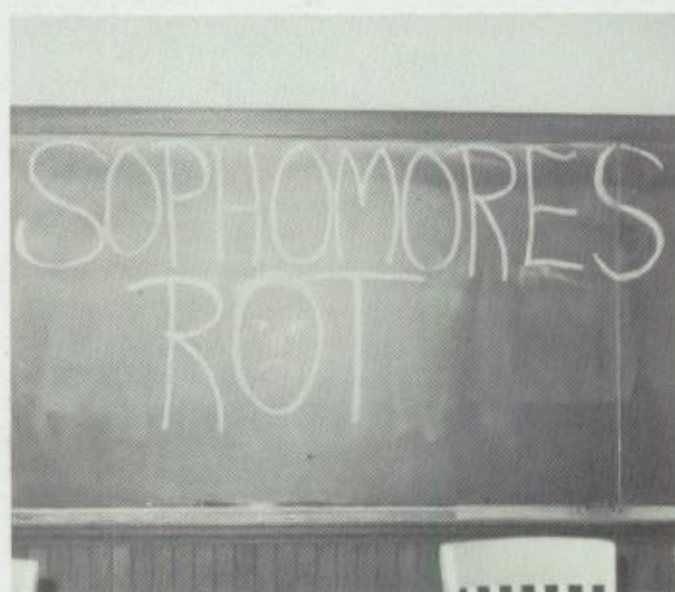 SOPHOMORES
ROT